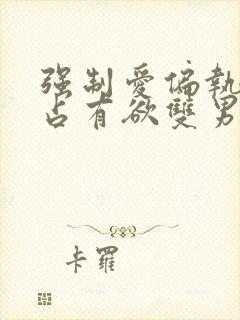 强制愛偏執
占有欲雙男
卡羅